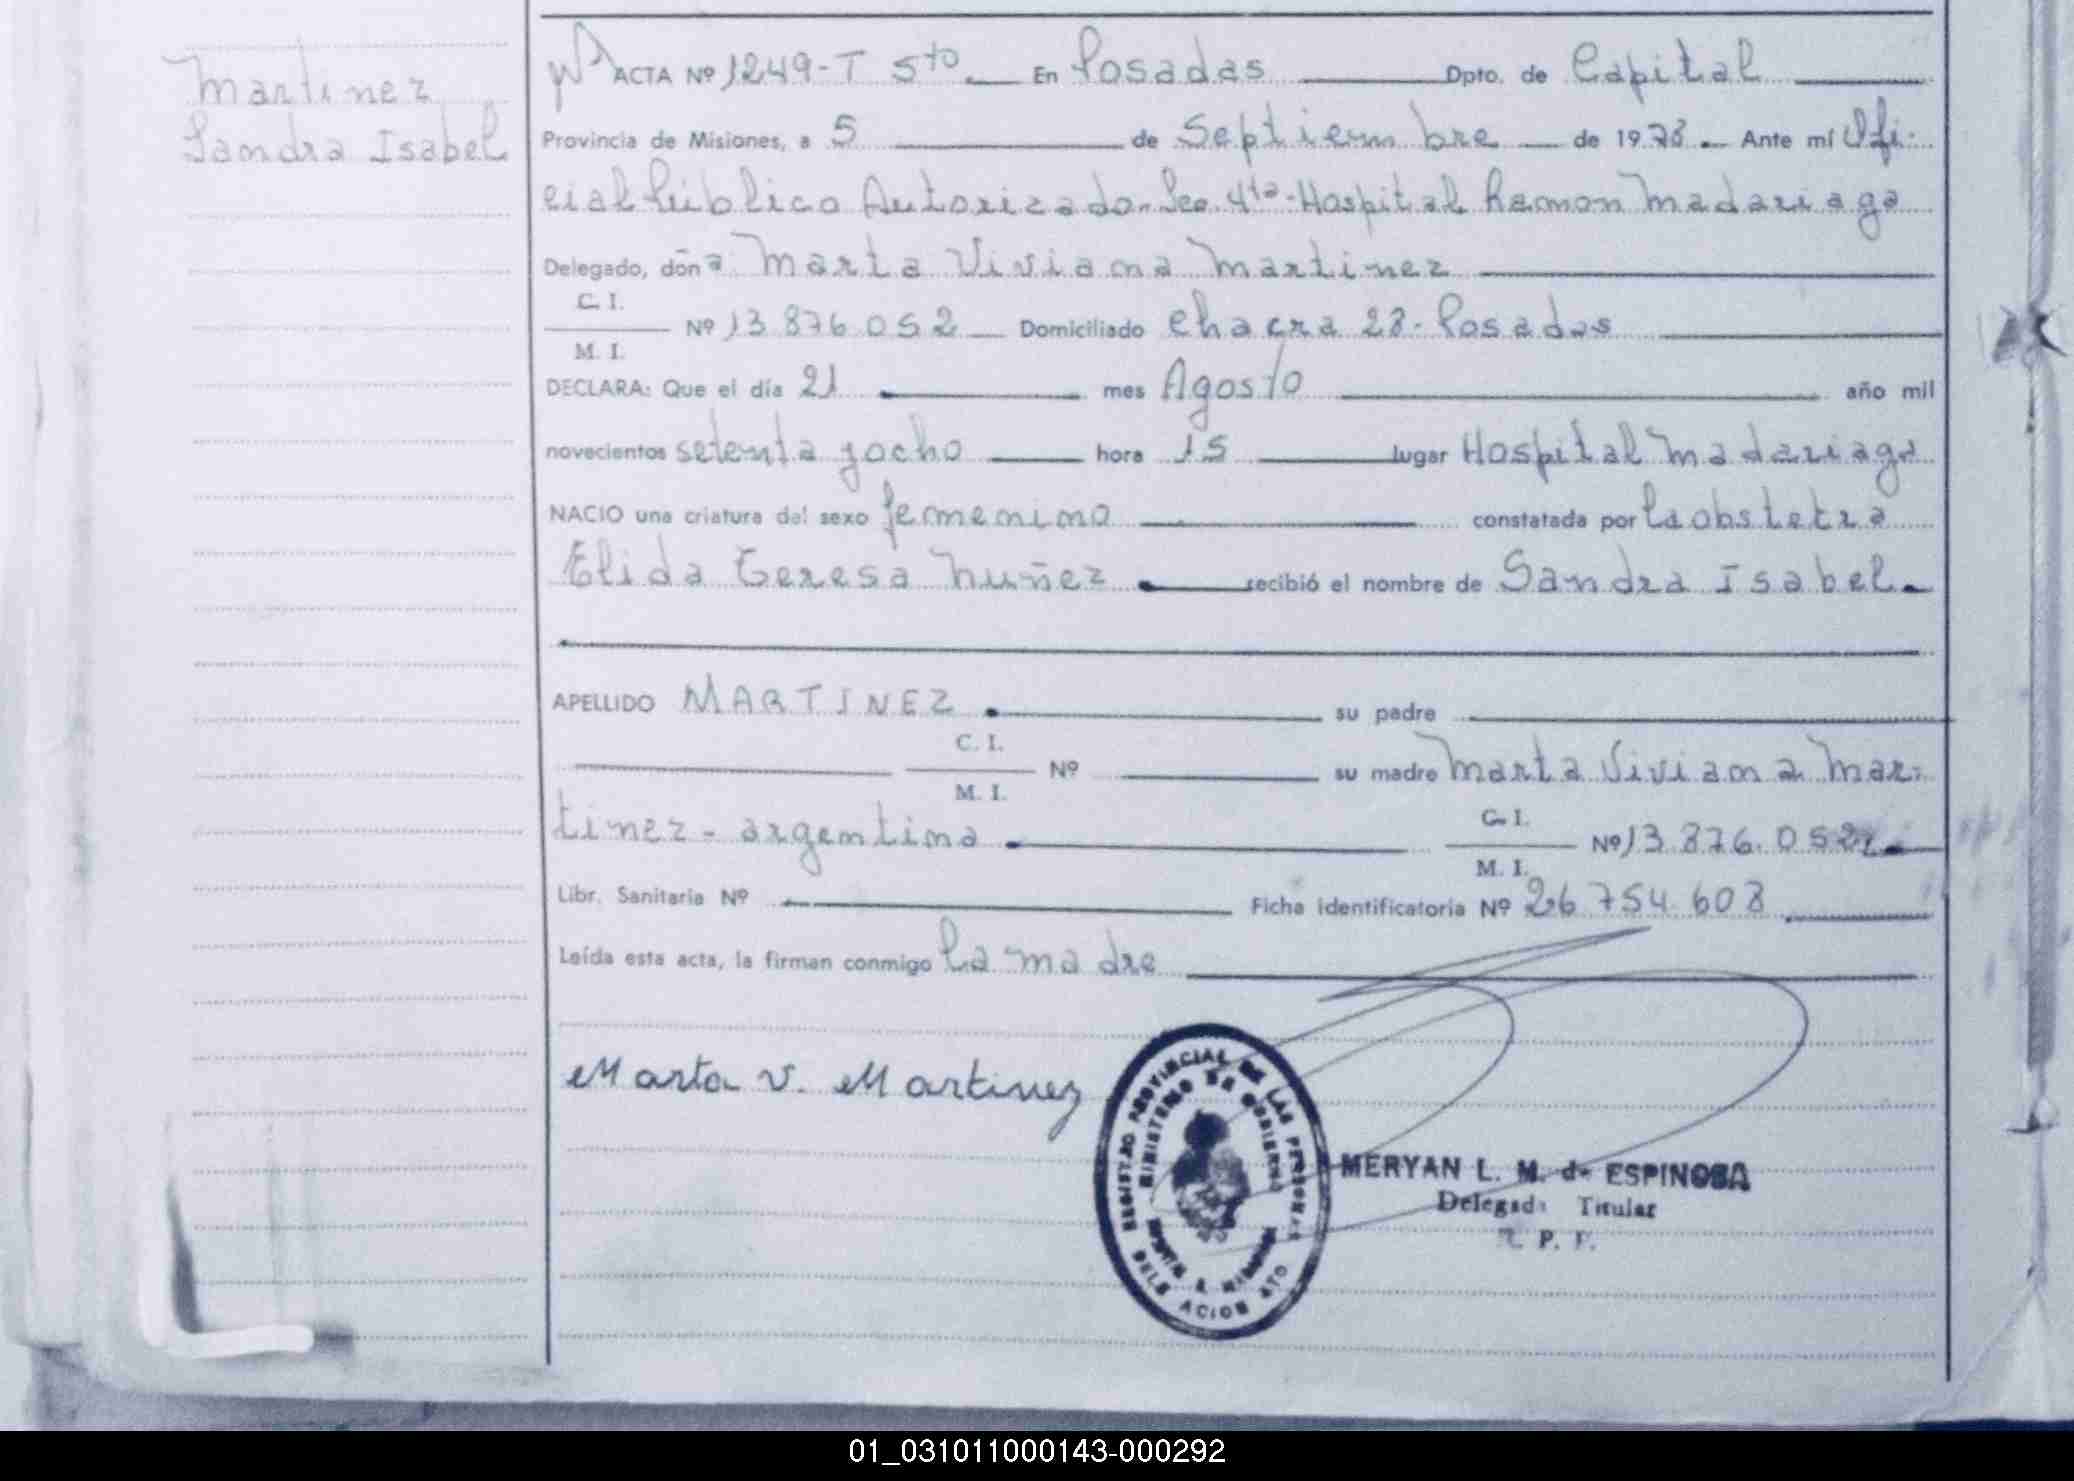 Martinez
Sandra Isabel
ACTA Nº 1249-T 5to. En Posadas Dpto. de Capital
Provincia de Misiones, a 5 de Septiembre de 1978. Ante mí Ofi-
cial Público Autorizado. Sec. 4ta-Hospital Ramon Madariaga
Delegado, doña Marta Viviana Martinez
C. I.
Nº 13 876 052 Domiciliado Chacra 28. Posadas
M. I.
DECLARA: Que el día 21 mes Agosto año mil
novecientos setenta yocho hora 15 lugar Hospital Madariaga
NACIO una criatura del sexo femenino constatada por la obstetra
Elida Teresa Nuñez recibió el nombre de Sandra Isabel.
APELLIDO MARTINEZ su padre
C. I.
Nº su madre Marta Viviana Mar-
M. I.
tinez - argentina
C. I.
Nº 13.876.052
M. I.
Libr. Sanitaria Nº Ficha identificatoria Nº 26 754 608
Leída esta acta, la firman conmigo la madre
Marta V. Martinez
REGISTRO PROVINCIAL DE LAS PERSONAS
MINISTERIO DE GOBIERNO
DELEGACION 4TO
MERYAN L. M. de ESPINOSA
Delegada Titular
R. P. P.
01_031011000143-000292